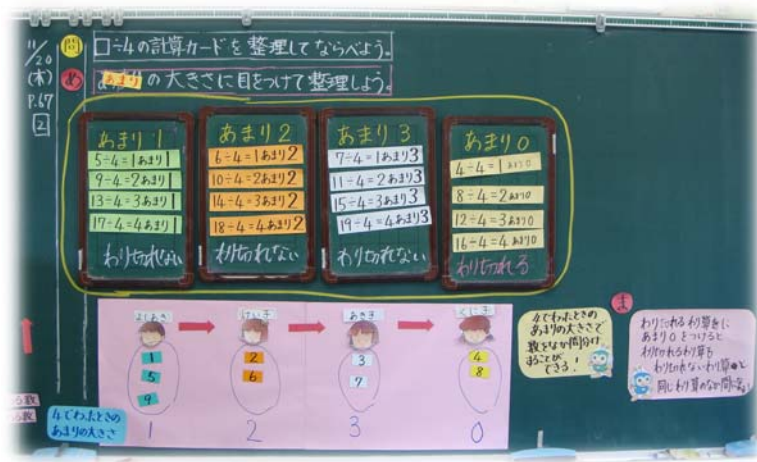 11/20
(木)
P.67
2
問
□÷4の計算カードを整理してならべよう。
め
あまりの大きさに目をつけて整理しよう。
あまり1
5÷4=1あまり1
9÷4=2あまり1
13÷4=3あまり1
17÷4=4あまり1
わり切れない
あまり2
6÷4=1あまり2
10÷4=2あまり2
14÷4=3あまり2
18÷4=4あまり2
わり切れない
あまり3
7÷4=1あまり3
11÷4=2あまり3
15÷4=3あまり3
19÷4=4あまり3
わり切れない
あまり0
4÷4=1あまり0
8÷4=2あまり0
12÷4=3あまり0
16÷4=4あまり0
わり切れる
よしあき
1
5
9
1
けい子
2
6
2
あき子
3
7
3
くに子
4
8
0
る数
る数
4でわったときの
あまりの大きさ
4でわったときの
あまりの大きさで
数をなか間分け
することが
できる!
ま
わり切れるわり算に
あまり0をつけると
わり切れるわり算も
わり切れないわり算と
同じわり算のなか間